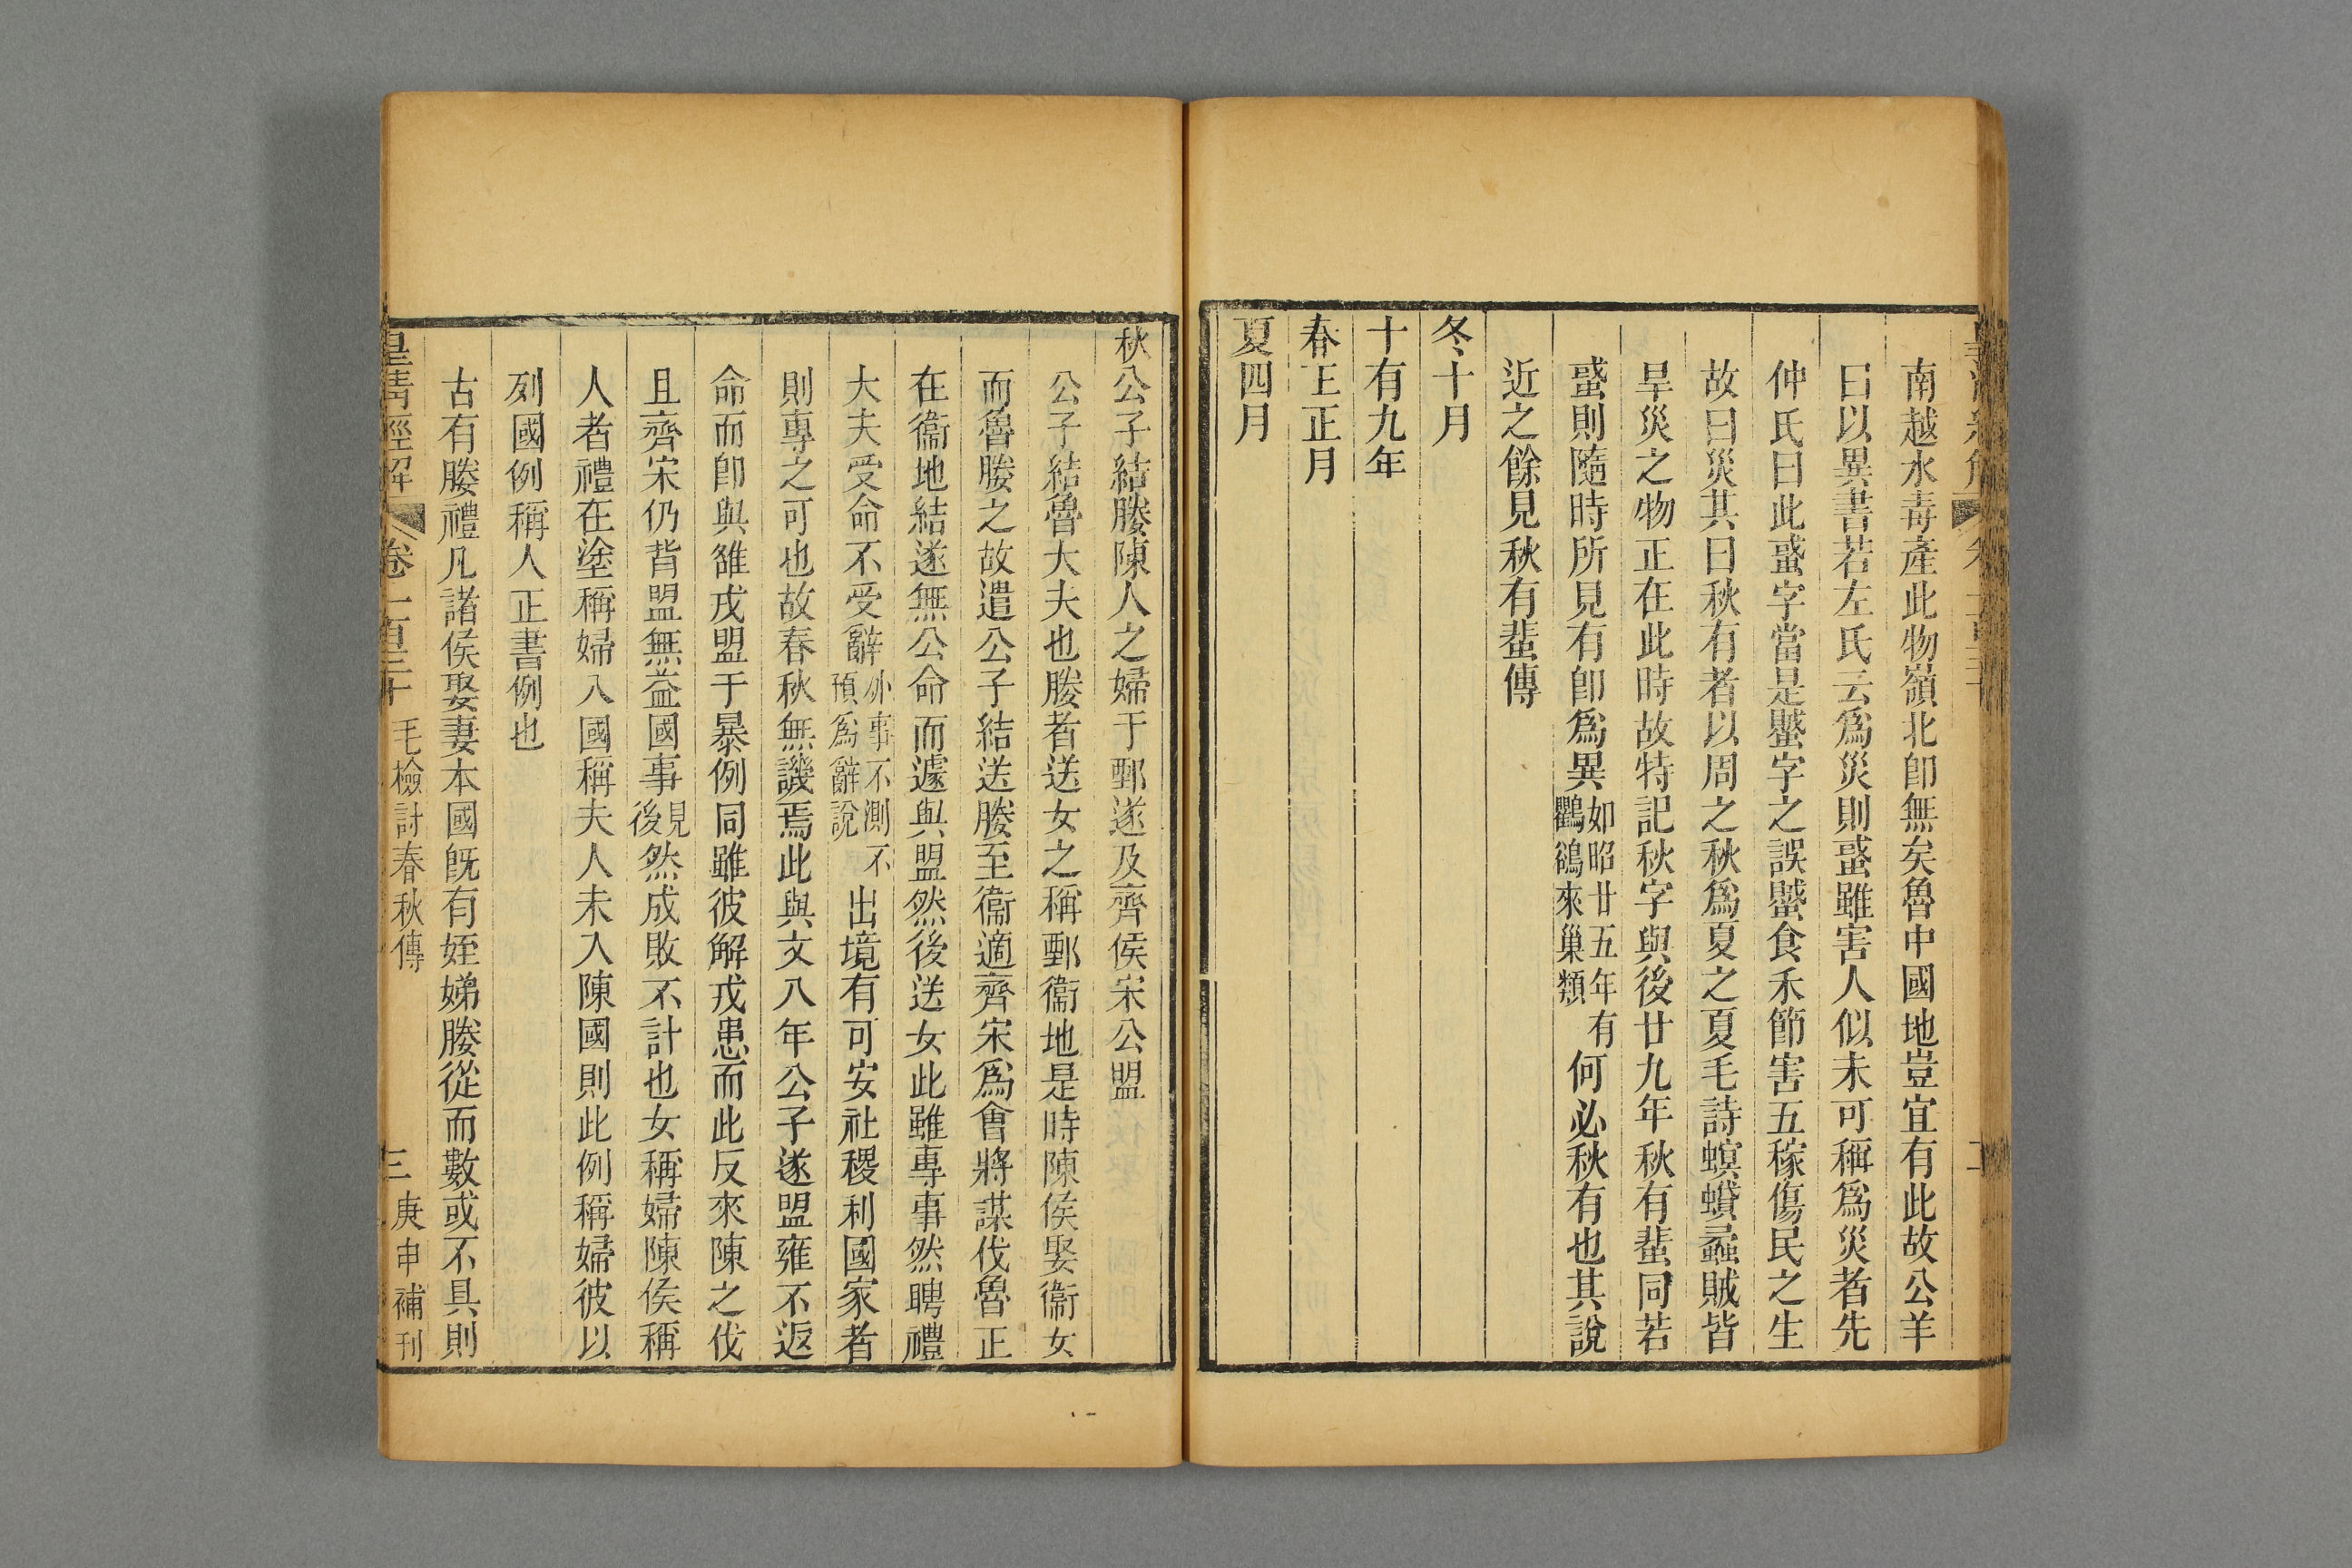 南越水毒產此物嶺北卽無矣魯中國地豈宜有此故公羊
曰以異書若左氏云爲災則蜮雖害人似未可稱爲災者先
仲氏曰此蜮字當是蟨字之誤蟨食禾節害五稼傷民之生
故曰災其曰秋有者以周之秋爲夏之夏毛詩螟蟘蟊賊皆
旱災之物正在此時故特記秋字與後廿九年秋有蜚同若
蜮則隨時所見有卽爲異如昭廿五年有鸜鵒來巢類何必秋有也其說
近之餘見秋有蜚傳
冬十月
十有九年
春王正月
夏四月
秋公子結媵陳人之婦于鄄遂及齊侯宋公盟
公子結魯大夫也媵者送女之稱鄄衞地是時陳侯娶衞女
而魯媵之故遣公子結送媵至衞適齊宋爲會將謀伐魯正
在衞地結遂無公命而遽與盟然後送女此雖專事然聘禮
大夫受命不受辭外事不測不預爲辭說出境有可安社稷利國家者
則專之可也故春秋無譏焉此與文八年公子遂盟雍不返
命而卽與雒戎盟于暴例同雖彼解戎患而此反來陳之伐
且齊宋仍背盟無益國事見後然成敗不計也女稱婦陳侯稱
人者禮在塗稱婦入國稱夫人未入陳國則此例稱婦彼以
列國例稱人正書例也
古有媵禮凡諸侯娶妻本國旣有姪娣媵從而數或不具則
皇淸經解 卷一百三十 毛檢討春秋傳 三 庚申補刊